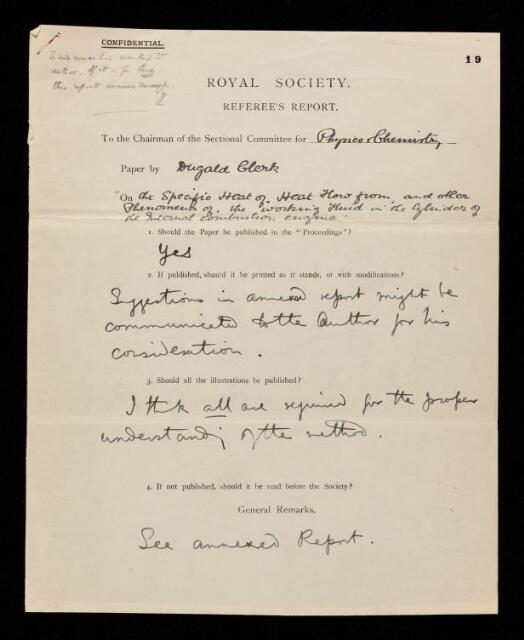 CONFIDENTIAL.
19
author. If it is for
this report seems enough.
ROYAL SOCIETY.
REFEREE'S REPORT.
To the Chairman of the Sectional Committee for Physics & Chemistry
Paper by Dugald Clerk
"On the Specific Heat of, Heat Flow from, and other
Phenomena of, the Working Fluid in the Cylinder of
the Internal Combustion engine."
1. Should the Paper be published in the "Proceedings"?
Yes
2. If published, should it be printed as it stands, or with modifications?
Suggestions in annexed report might be
communicated to the Author for his
consideration.
3. Should all the illustrations be published?
I think all are required for the proper
understanding of the method.
4. If not published, should it be read before the Society?
General Remarks.
See annexed Report.